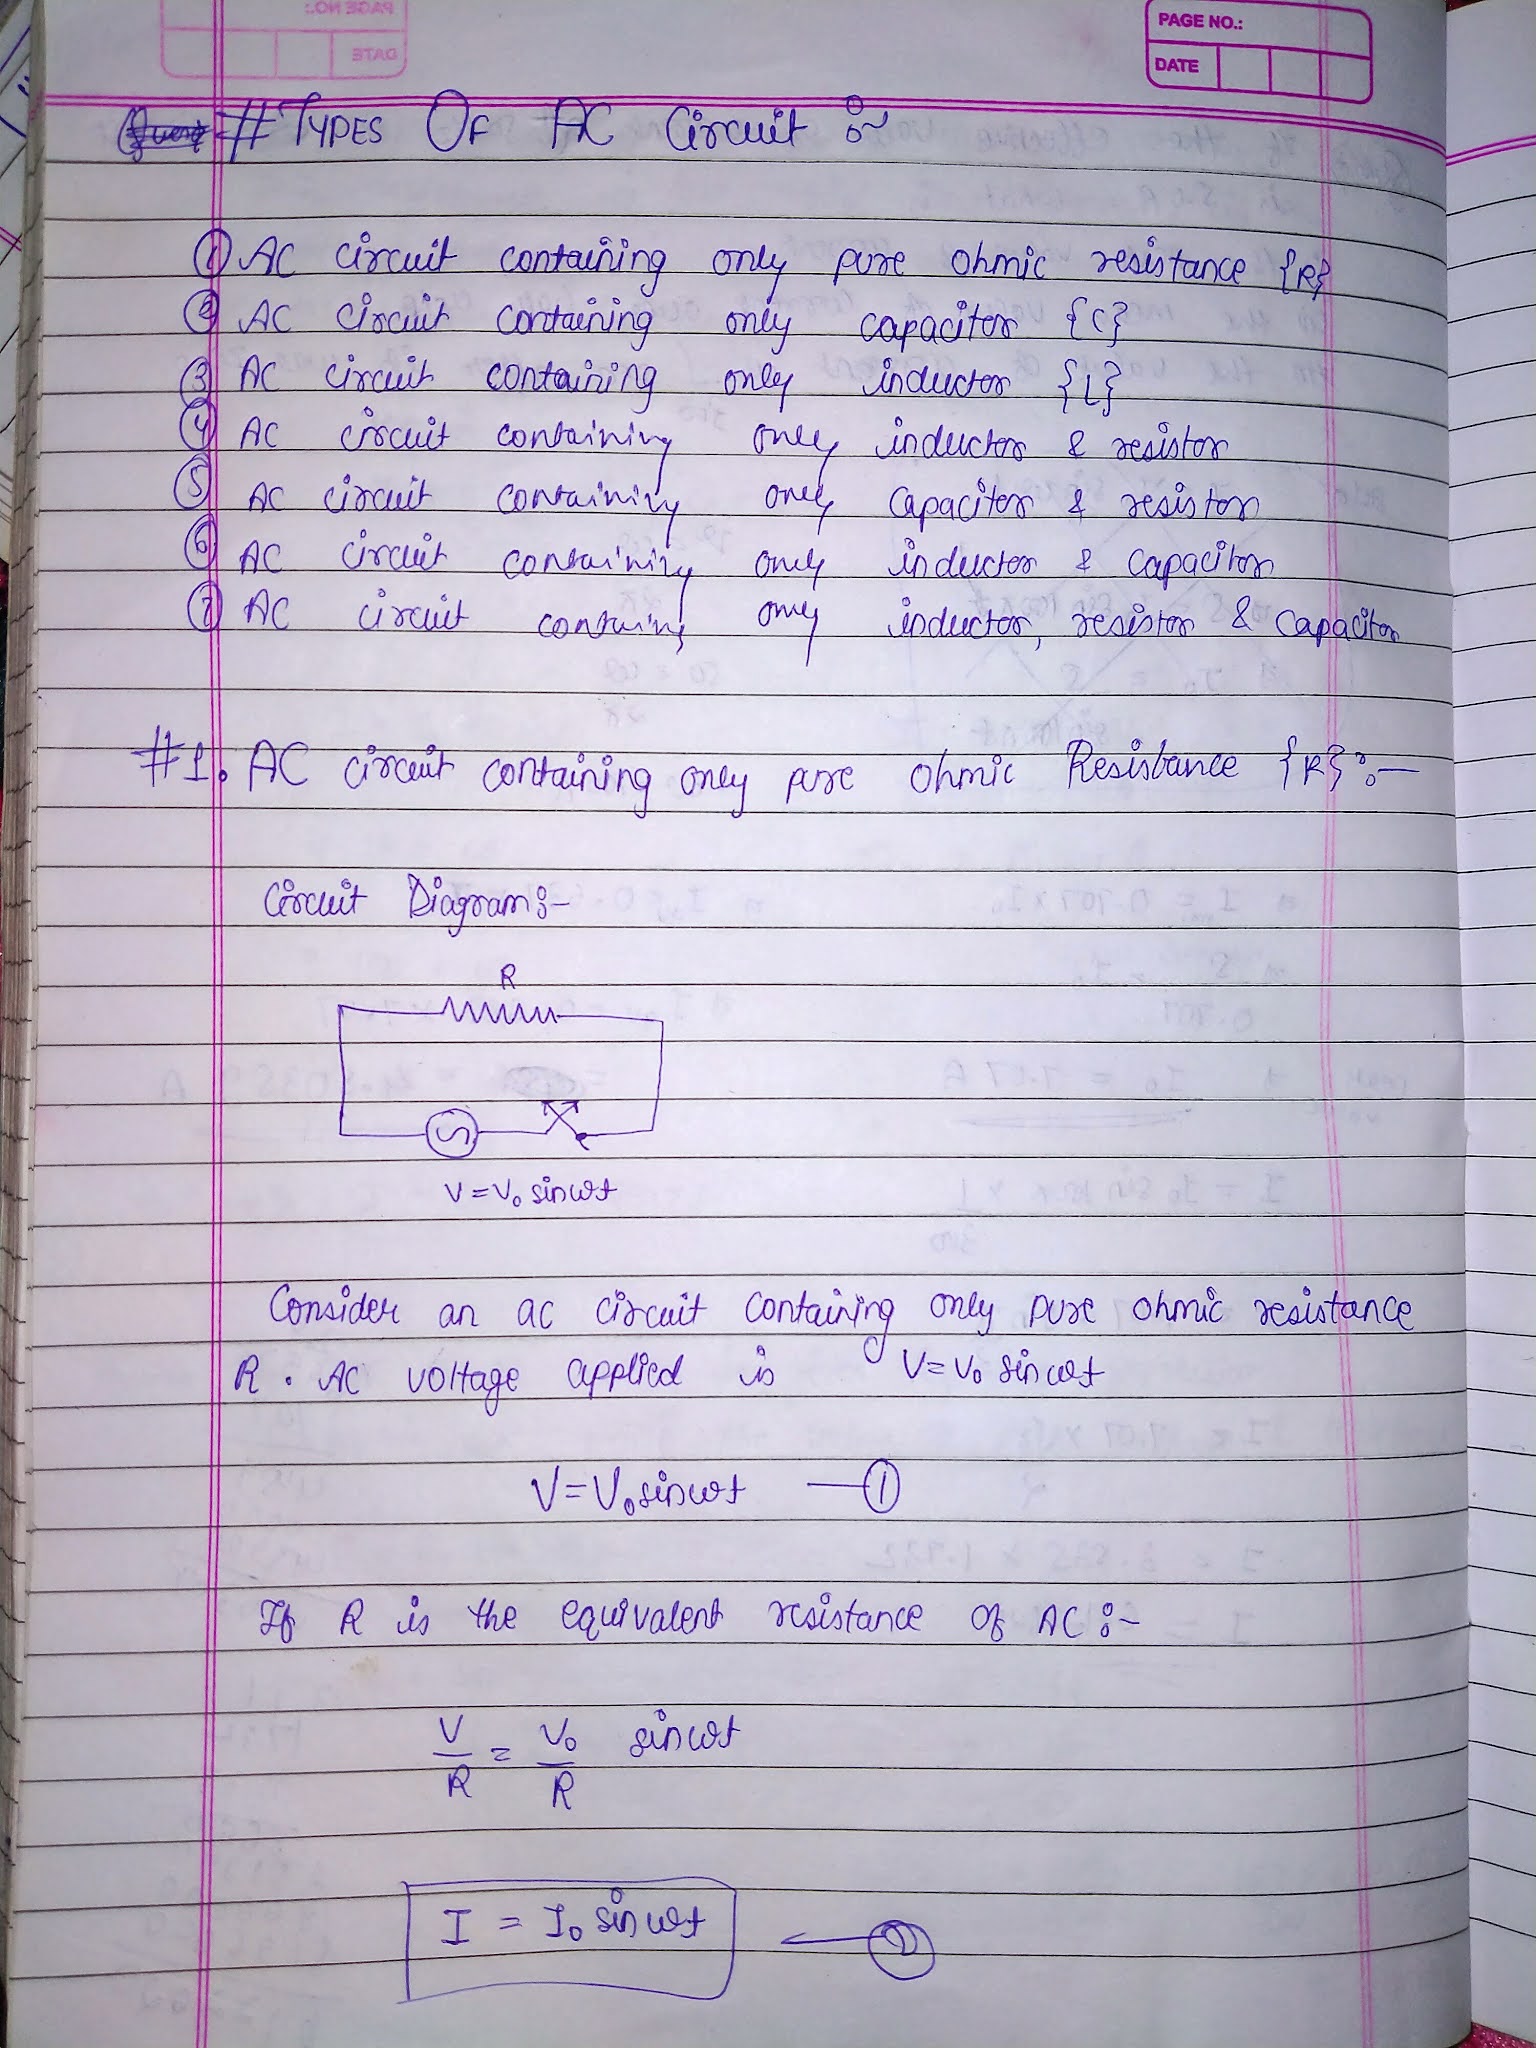 PAGE NO.:
DATE
# TYPES OF AC Circuit :~
① AC circuit containing only pure ohmic resistance {R}
② AC circuit containing only capacitor {C}
③ AC circuit containing only inductor {L}
④ AC circuit containing only inductor & resistor
⑤ AC circuit containing only capacitor & resistor
⑥ AC circuit containing only inductor & capacitor
⑦ AC circuit containing only inductor, resistor & capacitor
#1. AC circuit containing only pure ohmic Resistance {R} :-
Circuit Diagram :-
R
V = V₀ sin ωt
Consider an ac circuit containing only pure ohmic resistance
R. AC voltage applied is V = V₀ sin ωt
V = V₀ sin ωt —①
If R is the equivalent resistance of AC :-
V/R = V₀/R sin ωt
I = I₀ sin ωt —②